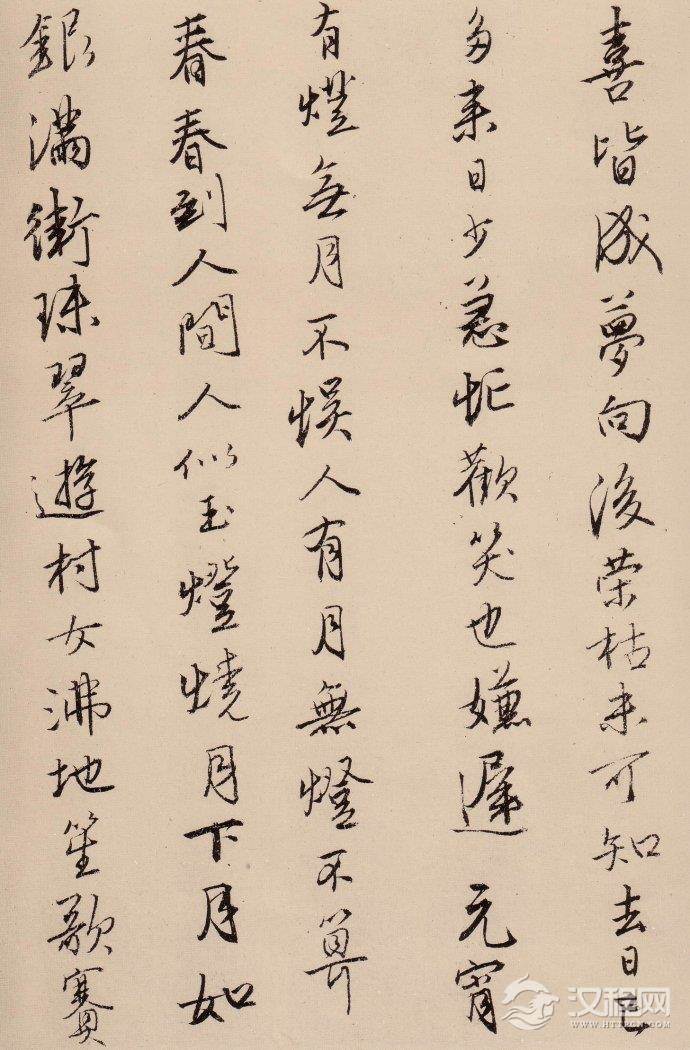 喜皆成夢向後荣枯未可知去日已
多来日少急忙歡笑也嫌遲 元宵
有燈無月不悮人有月無燈不算
春春到人間人似玉燈燒月下月如
銀滿街珠翠遊村女沸地笙歌賽
汉程网
WWW.HTTPCN.COM